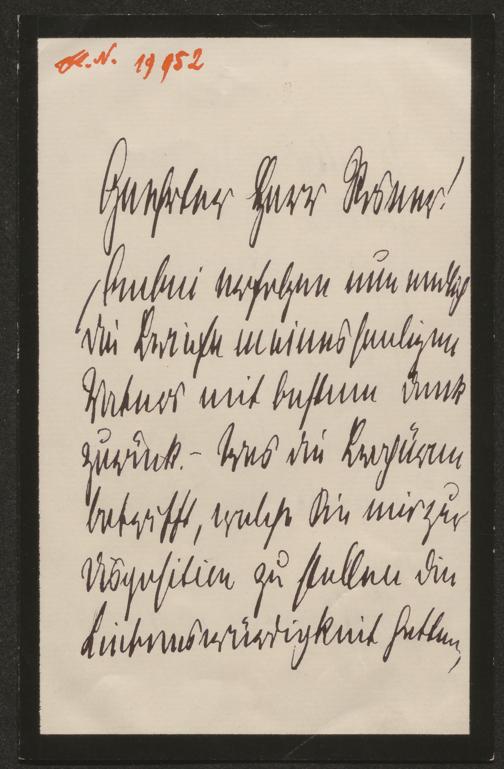 H.N. 19952
Geehrter Herr Rosner!
Anbei erfolgen nun endlich
die Briefe meines seeligen
Vaters mit bestem Dank
zurück. – Was die Brochüren
betrifft, welche Sie mir zur
Disposition zu stellen die
Liebenswürdigkeit hatten,